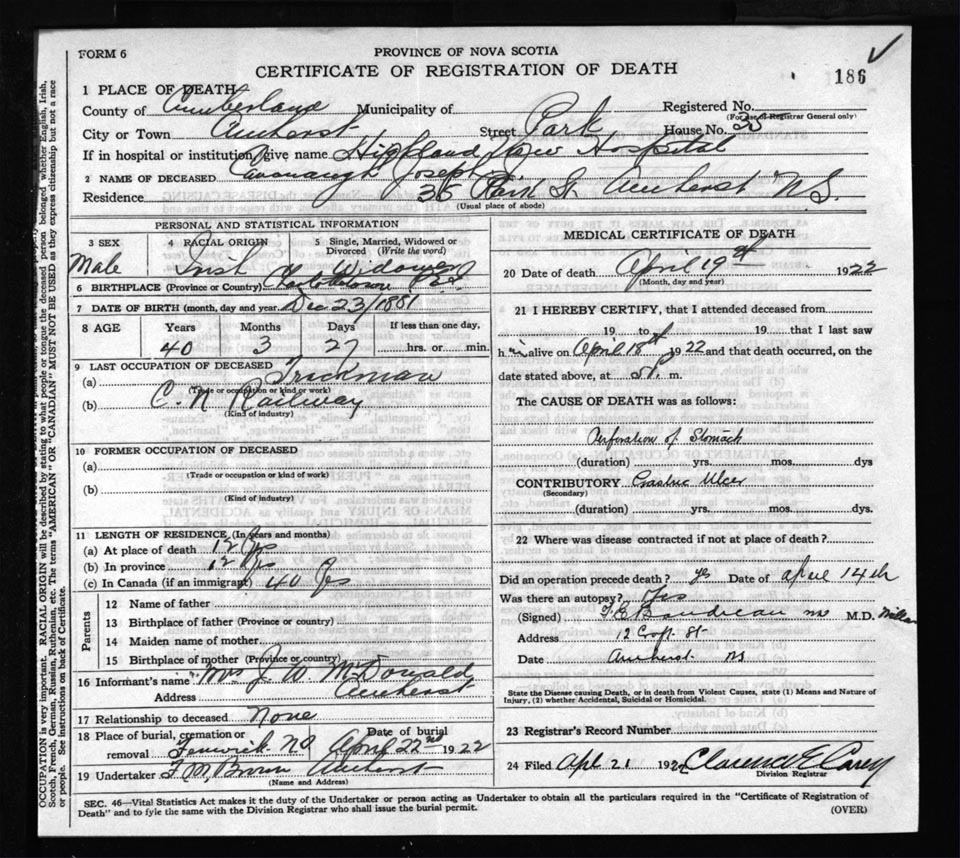 FORM 6
PROVINCE OF NOVA SCOTIA
CERTIFICATE OF REGISTRATION OF DEATH
186
1 PLACE OF DEATH
County of Cumberland Municipality of Registered No.
(For use of Registrar General only)
City or Town Amherst Street Park House No.
If in hospital or institution, give name Highland View Hospital
2 NAME OF DECEASED Cavanaugh Joseph
Residence 36 Park St. Amherst N.S.
(Usual place of abode)
PERSONAL AND STATISTICAL INFORMATION
3 SEX
Male
4 RACIAL ORIGIN
Irish
5 Single, Married, Widowed or Divorced (Write the word)
Widower
6 BIRTHPLACE (Province or Country) P.E.I.
7 DATE OF BIRTH (month, day and year) Dec 23/1881
8 AGE Years Months Days If less than one day,
40 3 27 hrs. or min.
9 LAST OCCUPATION OF DECEASED
(a) Trickman
(Trade or occupation or kind or work)
(b) C. N. Railway
(Kind of industry)
10 FORMER OCCUPATION OF DECEASED
(a)
(Trade or occupation or kind of work)
(b)
(Kind of industry)
11 LENGTH OF RESIDENCE (In years and months)
(a) At place of death 12 Yrs
(b) In province 12 Yrs
(c) In Canada (if an immigrant) 40 Yrs
Parents
12 Name of father
13 Birthplace of father (Province or country)
14 Maiden name of mother
15 Birthplace of mother (Province or country)
16 Informant's name Mrs J. W. McDonald
Address Amherst
17 Relationship to deceased None
18 Place of burial, cremation or removal Fenwick NS Date of burial April 22nd 1922
19 Undertaker Amherst
(Name and Address)
MEDICAL CERTIFICATE OF DEATH
20 Date of death April 19th 1922
(Month, day and year)
21 I HEREBY CERTIFY, that I attended deceased from
19 to 19 that I last saw
h im alive on April 18th 1922 and that death occurred, on the
date stated above, at m.
The CAUSE OF DEATH was as follows:
Perforation of Stomach
(duration) yrs. mos. dys
CONTRIBUTORY Gastric Ulcer
(Secondary)
(duration) yrs. mos. dys.
22 Where was disease contracted if not at place of death?
Did an operation precede death? yes Date of April 14th
Was there an autopsy? Yes
(Signed) M.D.
Address 12 Crof. St
Date Amherst NS
State the Disease causing Death, or in death from Violent Causes, state (1) Means and Nature of
Injury, (2) whether Accidental, Suicidal or Homicidal.
23 Registrar's Record Number
24 Filed Apl 21 192 Clarence E Carey
Division Registrar
SEC. 46—Vital Statistics Act makes it the duty of the Undertaker or person acting as Undertaker to obtain all the particulars required in the "Certificate of Registration of
Death" and to fyle the same with the Division Registrar who shall issue the burial permit.
(OVER)
OCCUPATION is very important. RACIAL ORIGIN will be described by stating to what people or tongue the deceased person belonged whether English, Irish,
Scotch, French, German, Russian, Ruthenian, etc. The terms "AMERICAN" OR "CANADIAN" MUST NOT BE USED as they express citizenship but not a race
or people. See instructions on back of Certificate.